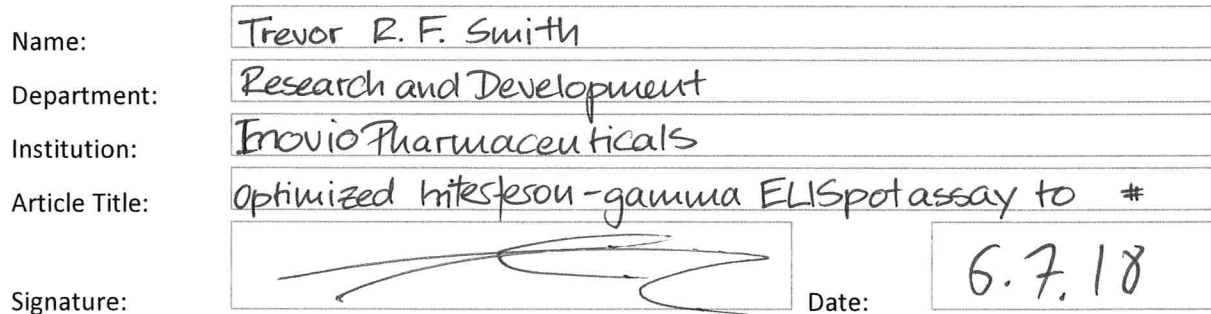 Name: Trevor R. F. Smith
Department: Research and Development
Institution: Inovio Pharmaceuticals
Article Title: Optimized Interferon-gamma ELISpot assay to #
Signature: Date: 6.7.18